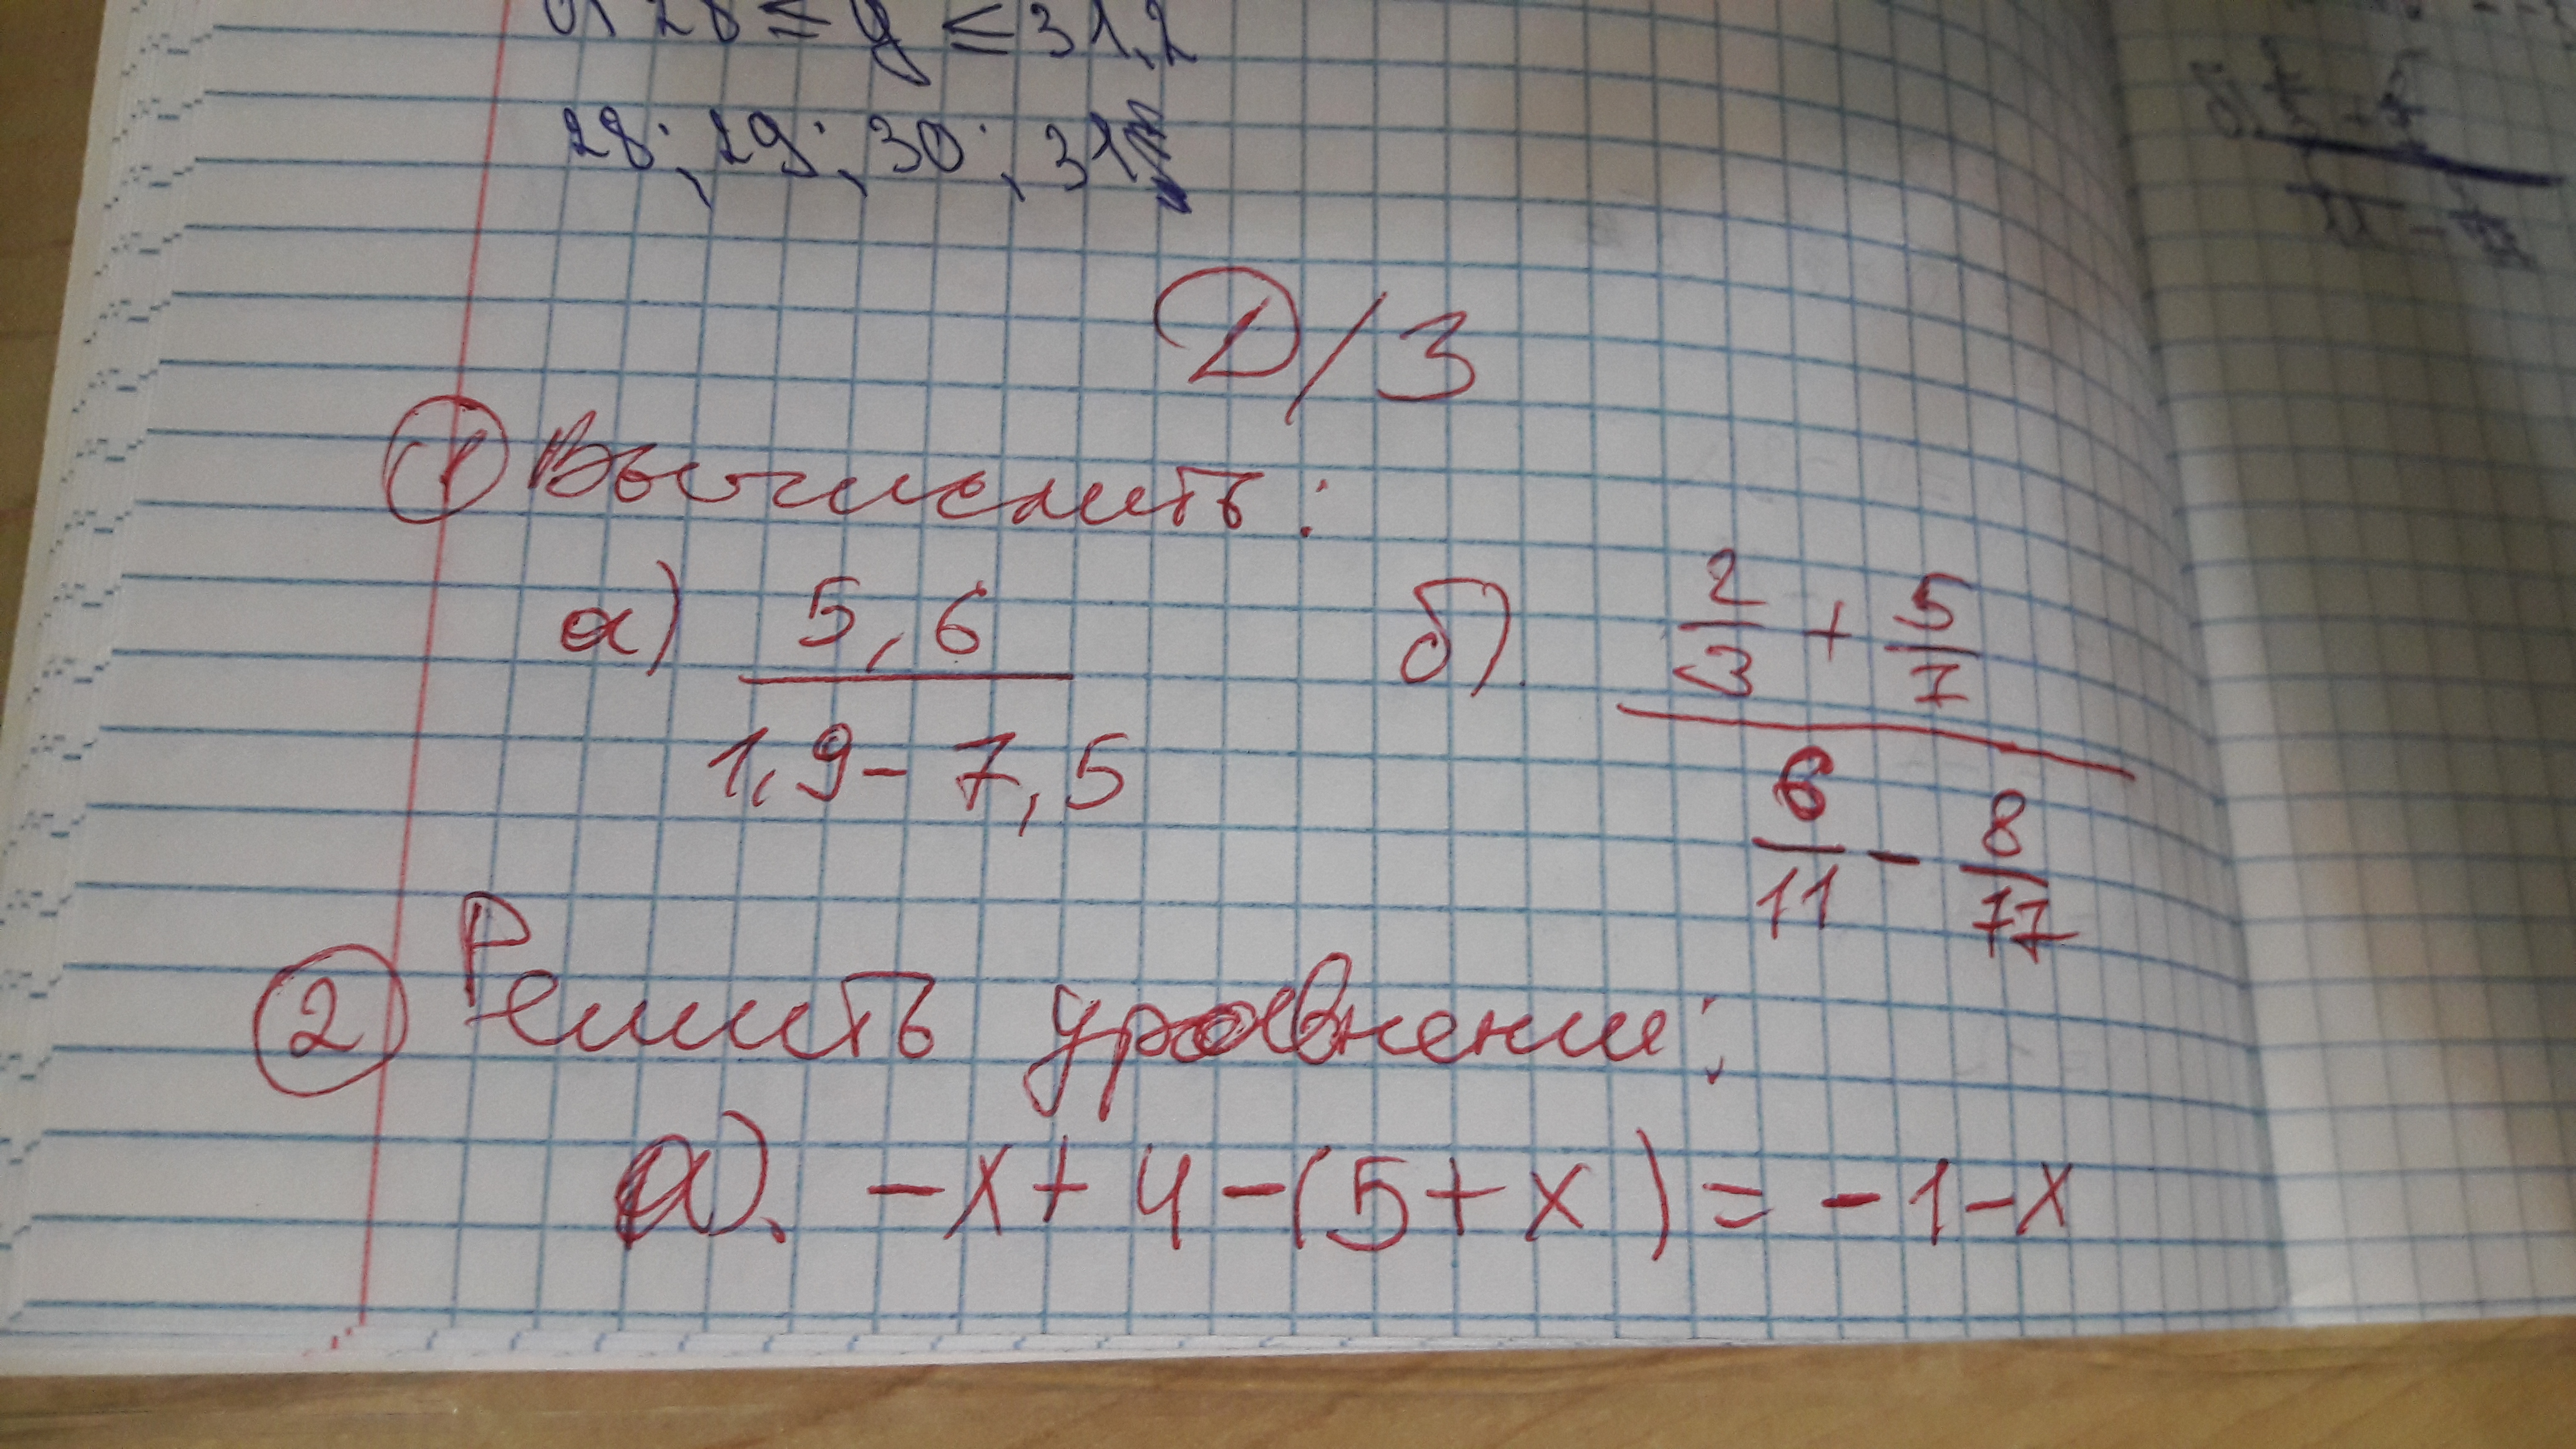 28 ≤ y ≤ 31,2
28; 29; 30; 31
Д/З
① Вычислить:
а) 5,6 / (1,9 - 7,5) б) (2/3 + 5/7) / (6/11 - 8/77)
② Решить уравнение:
а). -x + 4 - (5 + x) = -1 - x